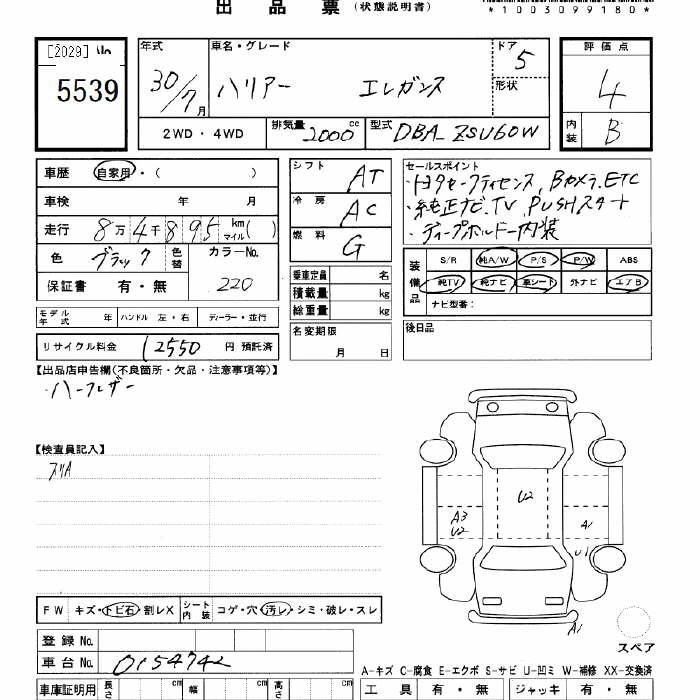 出品票（状態説明書）
*1003099180*
[2029] No
5539
年式 30/7月
車名・グレード ハリアー エレガンス
ドア 5
形状
評価点 4
内装 B
2WD・4WD 排気量 2000cc 型式 DBA ZSU60W
車歴 自家用・( )
車検 年 月
走行 8万4千895 km マイル( )
色 ブラック 色替 カラーNo. 220
保証書 有・無
シフト AT
冷房 AC
燃料 G
乗車定員 名
積載量 kg
総重量 kg
名変期限 月 日
セールスポイント
・トヨタセーフティセンス, Bカメラ, ETC
・純正ナビ, TV, PUSHスタート
・ディープボルドー内装
装備品 S/R 純A/W P/S P/W ABS
純TV 純ナビ 革シート 外ナビ エアB
ナビ型番：
後日品
モデル年式 年 ハンドル 左・右 ディーラー・並行
リサイクル料金 12550 円 預託済
【出品店申告欄（不良箇所・欠品・注意事項等）】
・ハーフレザー
【検査員記入】
スリA
U2
A3
U2
A1
U1
A1
FW キズ・トビ石・割レX シート内装 コゲ・穴・汚レ・シミ・破レ・スレ
登録No.
車台No. 0154742
スペア
A-キズ C-腐食 E-エクボ S-サビ U-凹ミ W-補修 XX-交換済
車庫証明用 長さ cm 幅 cm 高さ cm
工具 有・無 ジャッキ 有・無